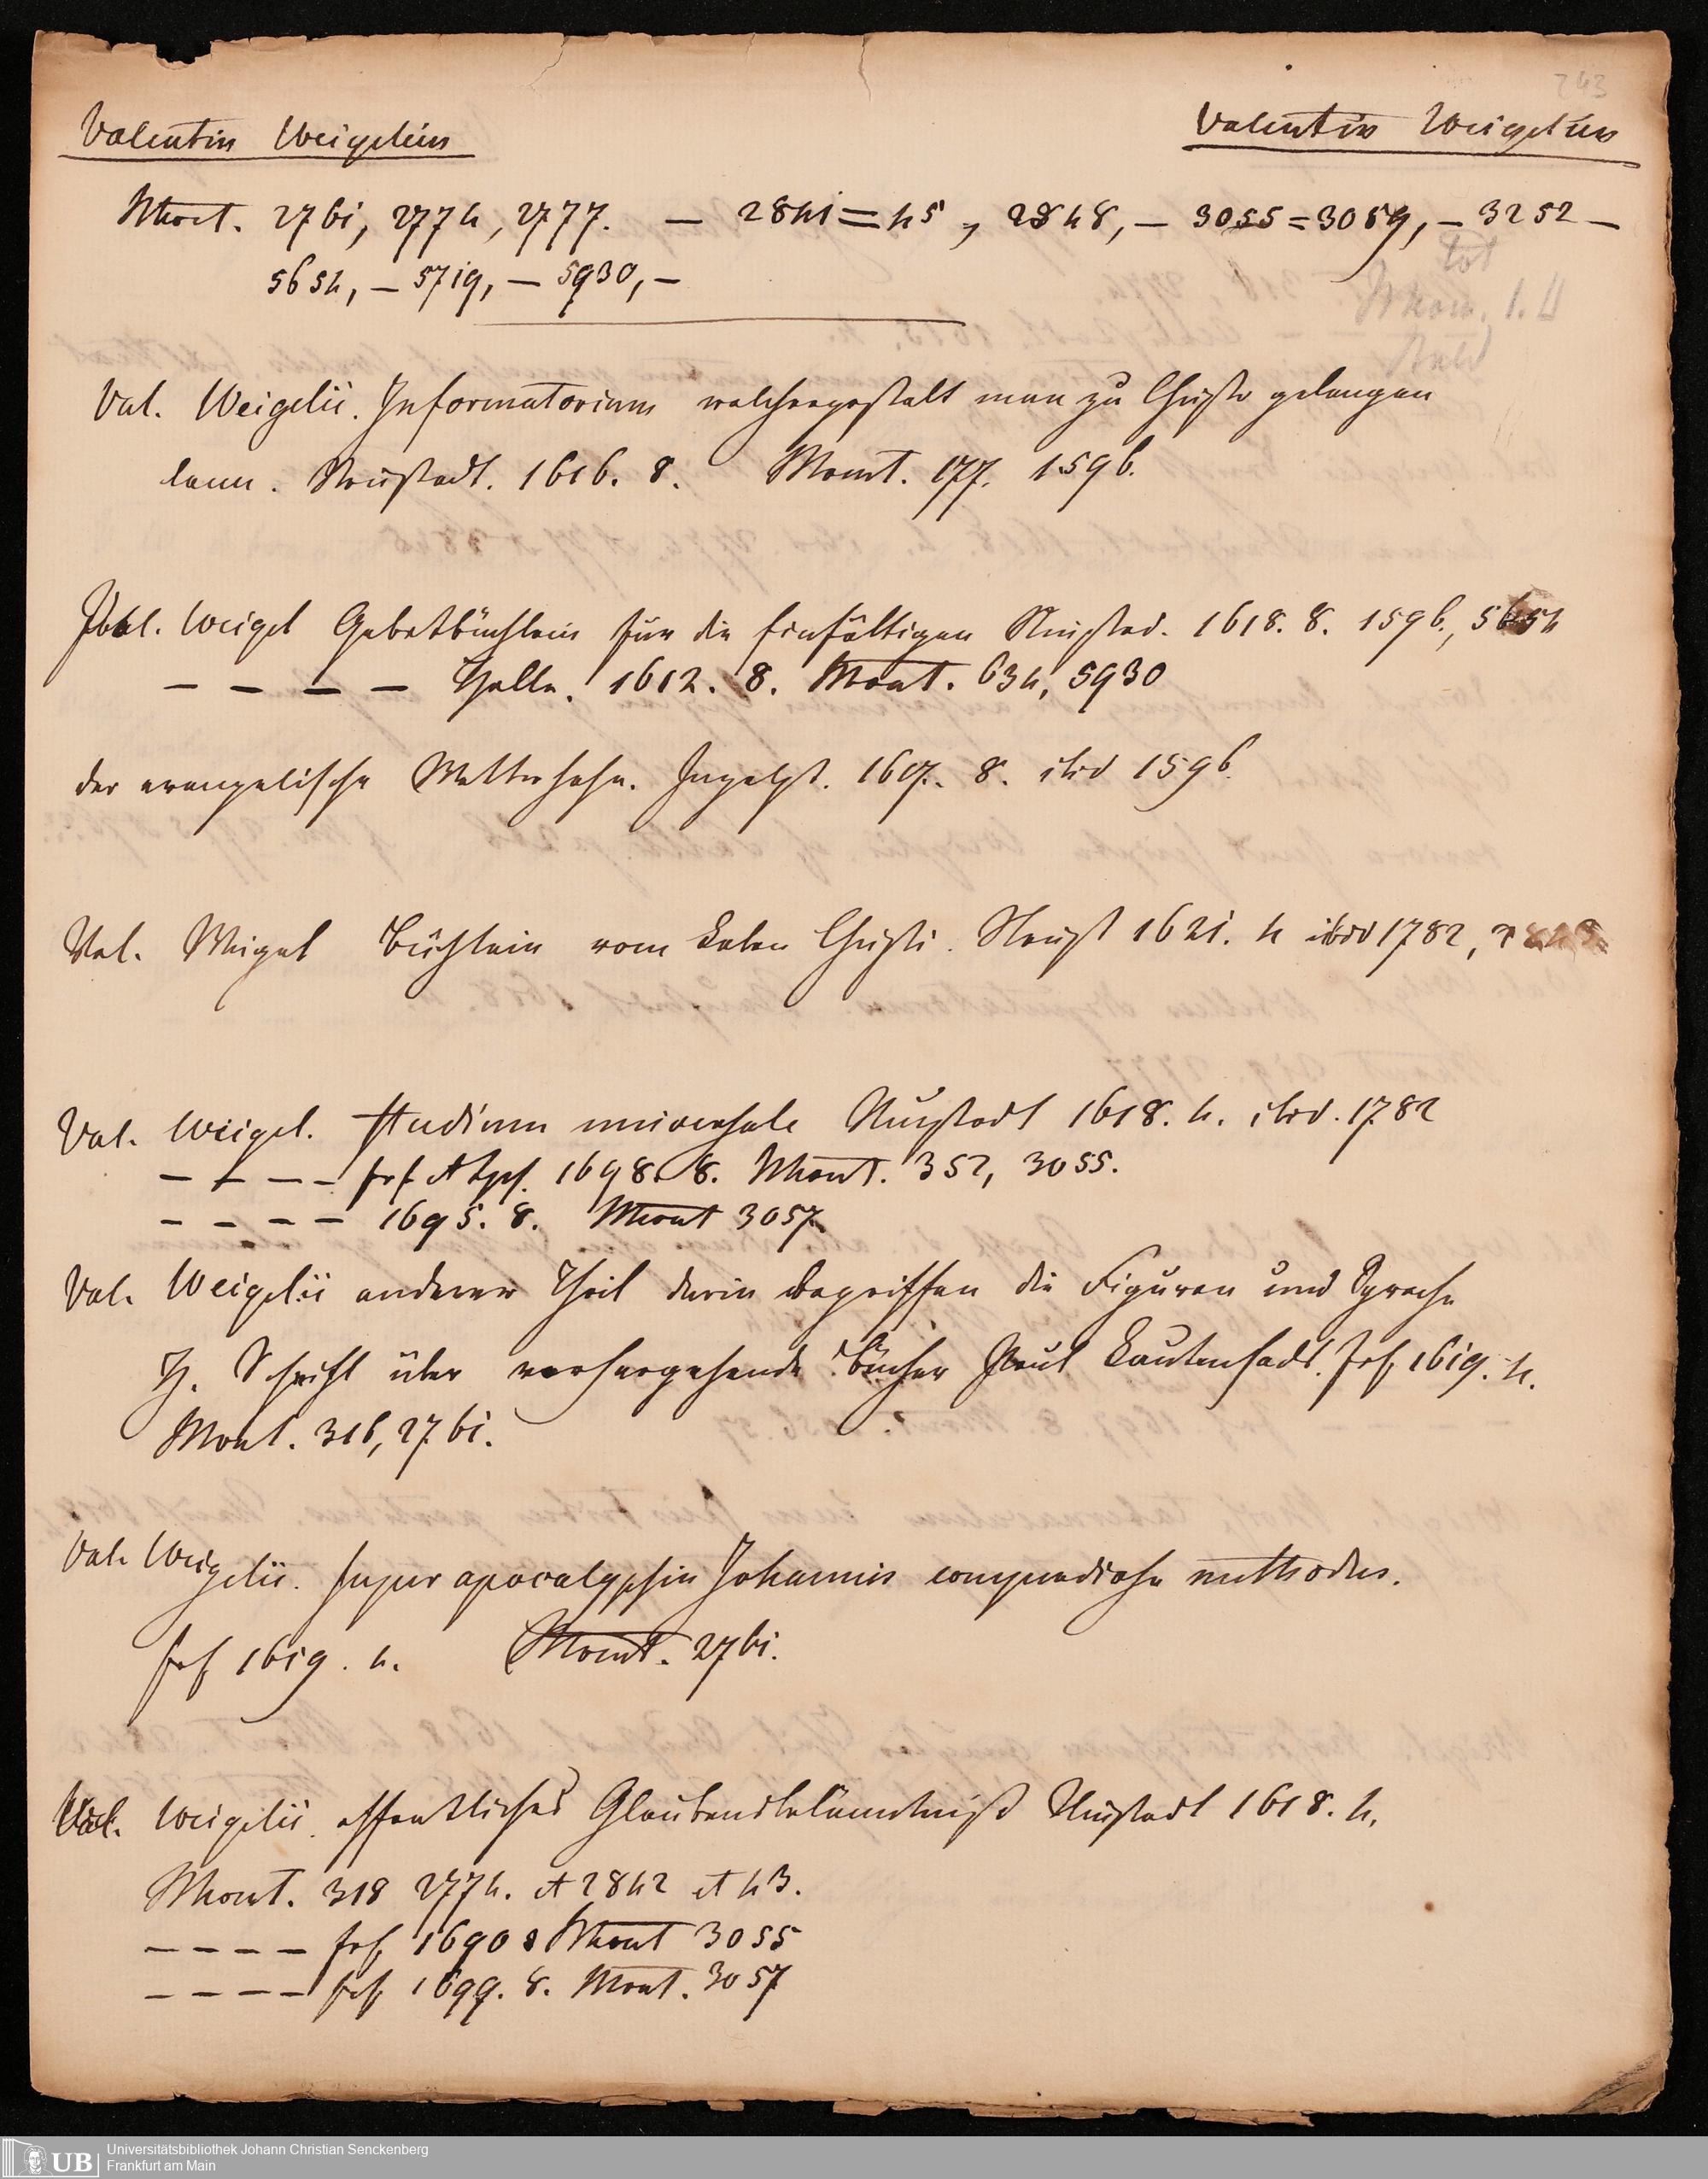 243
Valentin Weigelius
Valentin Weigelius
Mont. 2761, 2774, 2777. — 2841=45, 2848, — 3055=3059, — 3252 —
5654, — 5719, — 5930, —
tot
Mont. I. II
Val. Weigelii. Informatorium welchergestalt man zu Christo gelangen
kann. Neustadt. 1616. 8. Mont. 177. 1596.
Val. Weigel Gebetbüchlein für die Einfältigen Neustad. 1618. 8. 1596., 5654
— — — — Halle. 1612. 8. Mont. 634, 5930
der evangelische Wetterhahn. Ingolst. 1617. 8. ibid 1596.
Val. Weigel Büchlein vom Leben Christi. Neust 1621. 4 ibid 1782,
Val. Weigel. studium universale Neustadt 1618. 4. ibid. 1782
— — — — Frf et Lps. 1698. 8. Mont. 352, 3055.
— — — — 1695. 8. Mont 3057.
Val. Weigelii anderer Theil darin begriffen die Figuren und Sprache
H. Schrift über vorhergehende Bücher Paul Lautensacks. Frf. 1619. 4.
Mont. 316, 2761.
Val. Weigelii. super apocalypsin Johannis compendiosa methodus.
Frf 1619. 4. Mont. 2761.
Val. Weigelii. offentliches Glaubensbekänntniß Neustadt 1618. 4.
Mont. 318 2774. et 2842 et 43.
— — — — Frf. 1690 8 Mont 3055
— — — — Frf. 1699. 8. Mont. 3057
UB
Universitätsbibliothek Johann Christian Senckenberg
Frankfurt am Main